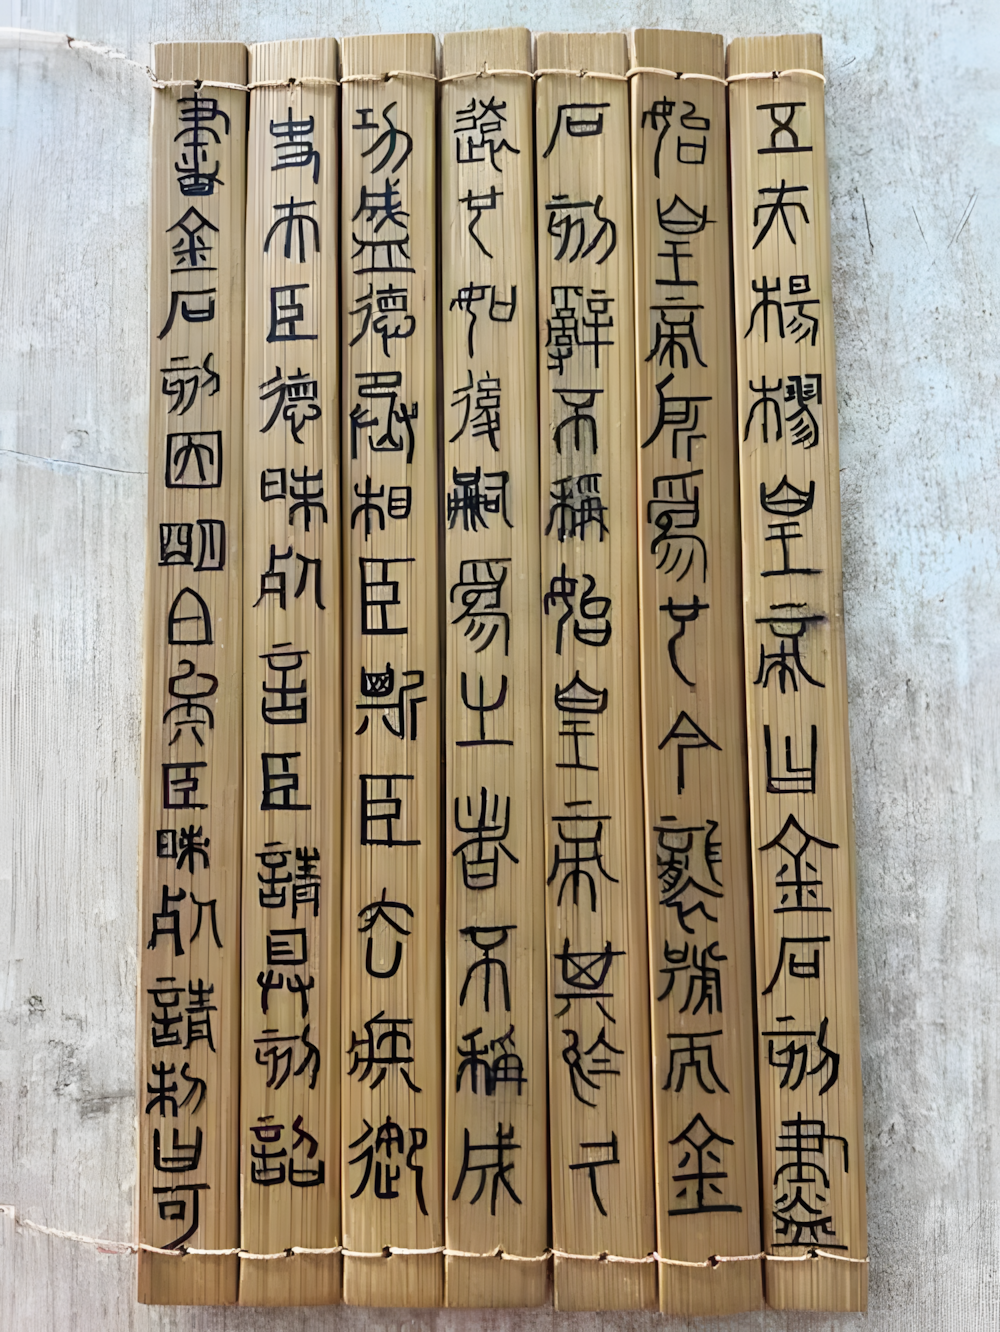 五夫楊樛皇帝曰金石刻盡
始皇帝所爲也今襲號而金
石刻辭不稱始皇帝其於久
遠也如後嗣爲之者不稱成
功盛德丞相臣斯臣去疾御
史夫臣德昧死言臣請具刻詔
書金石刻因明白矣臣昧死請制曰可